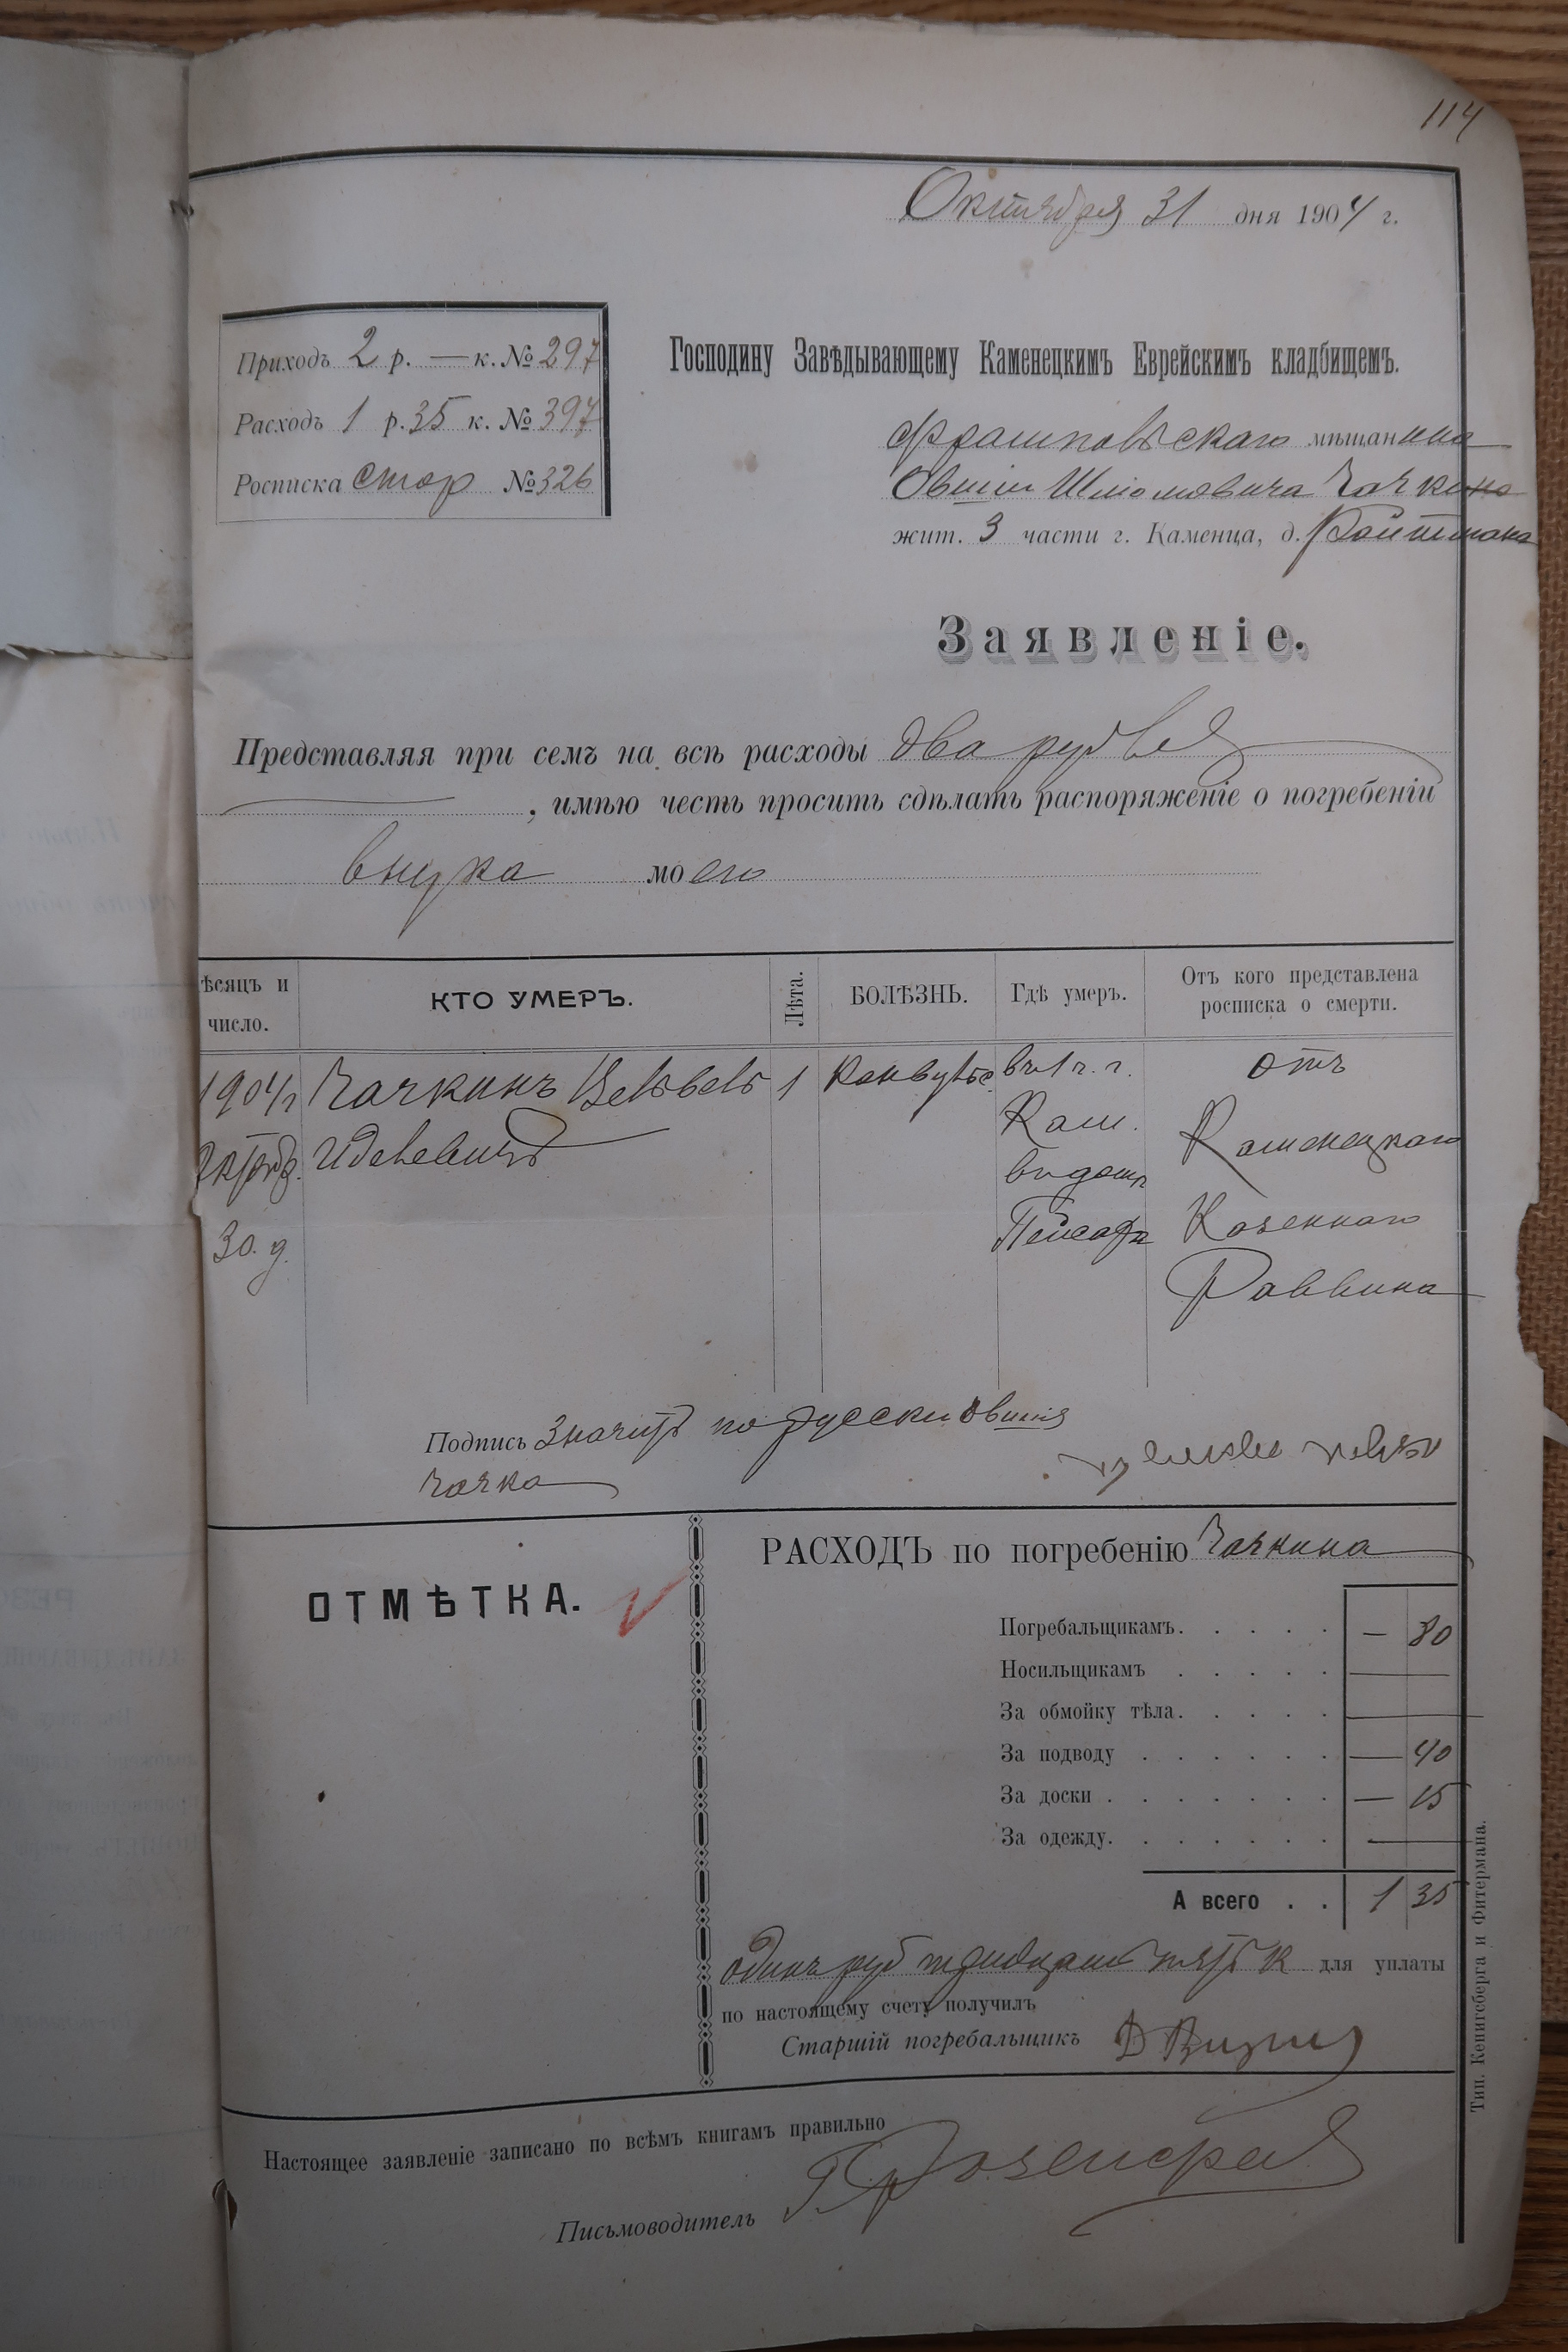 114
Октября 31 дня 1904 г.
Приходъ 2 р. — к. № 297
Расходъ 1 р. 35 к. № 397
Росписка стор № 326
Господину Завѣдывающему Каменецкимъ Еврейскимъ кладбищемъ.
мѣщанина
Овшии Шліомовича Чачкина
жит. 3 части г. Каменца, д. Ройтмана
Заявленіе.
Представляя при семъ на всѣ расходы два рубля
, имѣю честь просить сдѣлать распоряженіе о погребеніи
внука моего
ѣсяцъ и число.
КТО УМЕРЪ.
Лѣта.
БОЛѢЗНЬ.
Гдѣ умеръ.
Отъ кого представлена росписка о смерти.
1904 г
Октяб.
30 д.
Чачкинъ Вельвель
Иделевичъ
1
Конвульс.
въ 1 ч. г.
Кам.
въ домѣ
отъ
Каменецкаго
Казеннаго
Раввина
Подпись значитъ по русски Овшія
Чачка
ОТМѢТКА.
РАСХОДЪ по погребенію Чачкина
Погребальщикамъ. . . . . — 80
Носильщикамъ . . . . . —
За обмойку тѣла. . . . . —
За подводу . . . . . . — 40
За доски . . . . . . . — 15
За одежду. . . . . . . —
А всего . . 1 35
одинъ руб тридцать пять к для уплаты
по настоящему счету получилъ
Старшій погребальщикъ
Настоящее заявленіе записано по всѣмъ книгамъ правильно
Письмоводитель
Тип. Кенигсберга и Фитермана.